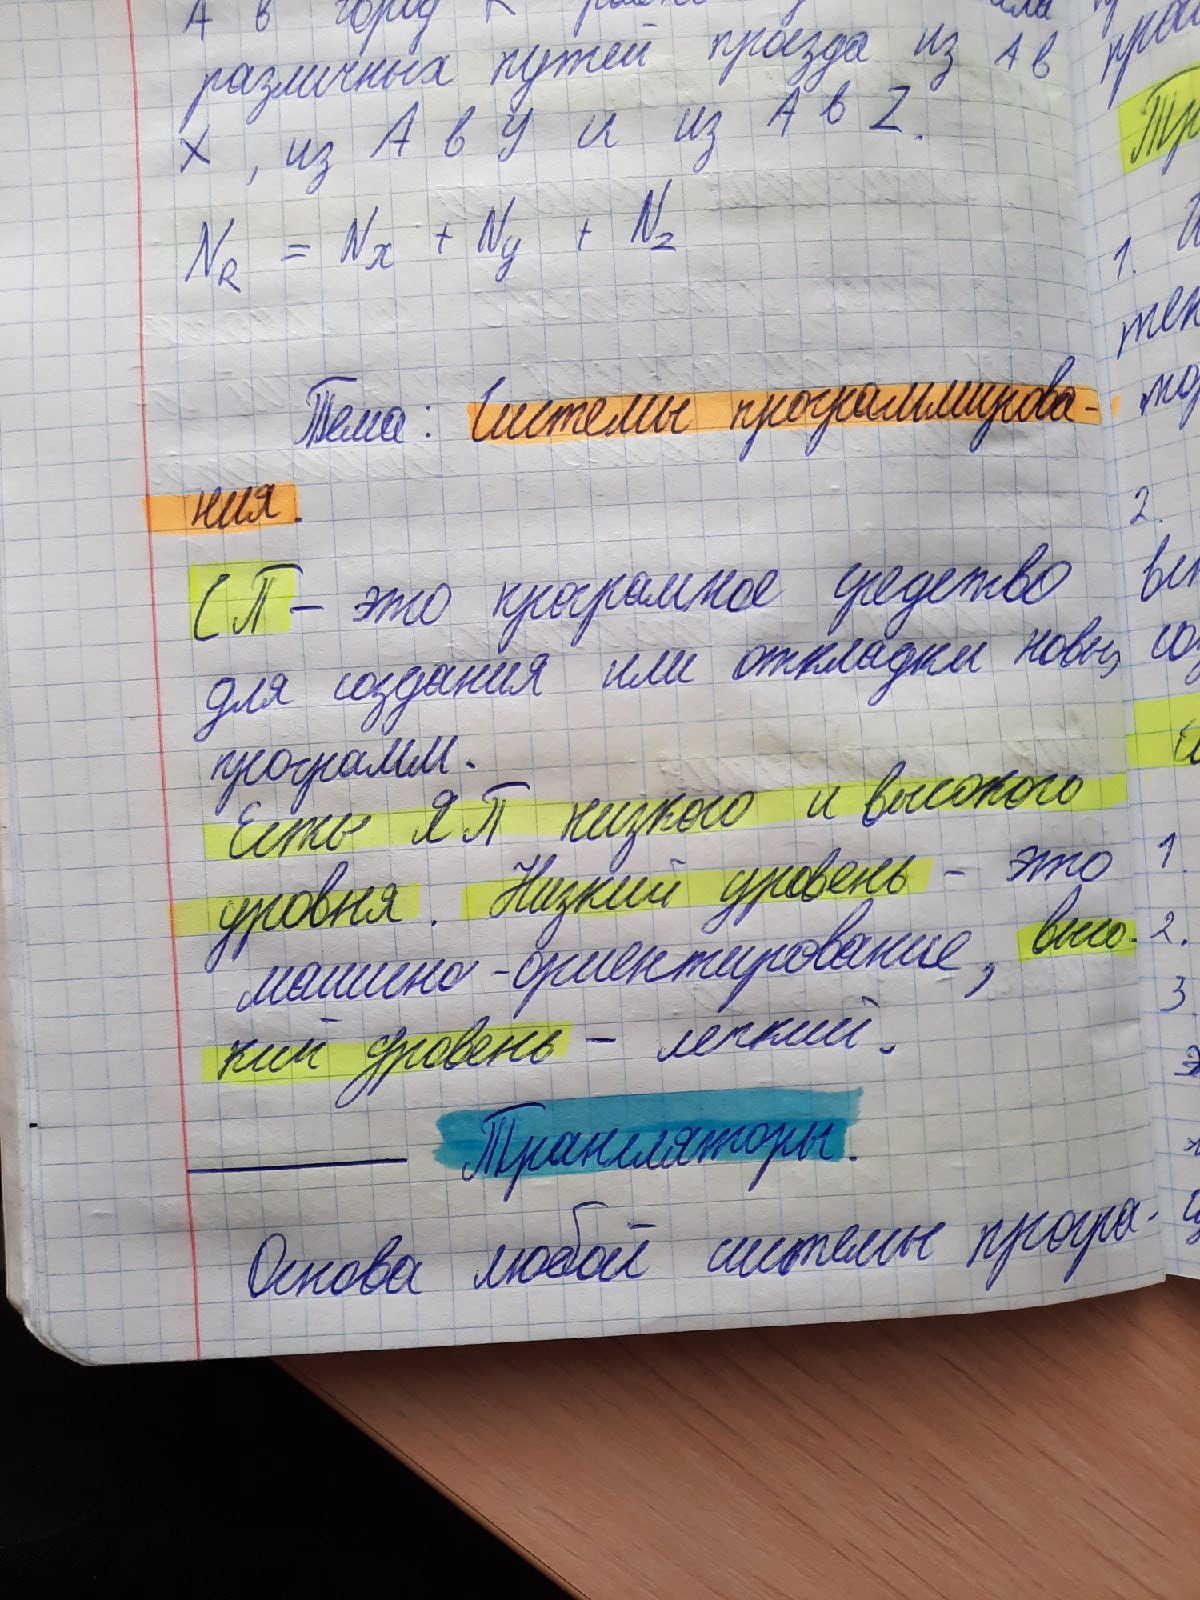 А в город R
различных путей проезда из А в
X, из А в Y и из А в Z.
N_R = N_x + N_y + N_z
Тема: Системы программирова-
ния.
СП – это програмное средство
для создания или откладки новых
программ.
Есть ЯП низкого и высокого
уровня. Низкий уровень – это
машино-ориентирование, высо-
кий уровень – легкий.
Трансляторы.
Основа любой системы програ-
1.
2.
1.
2.
3.